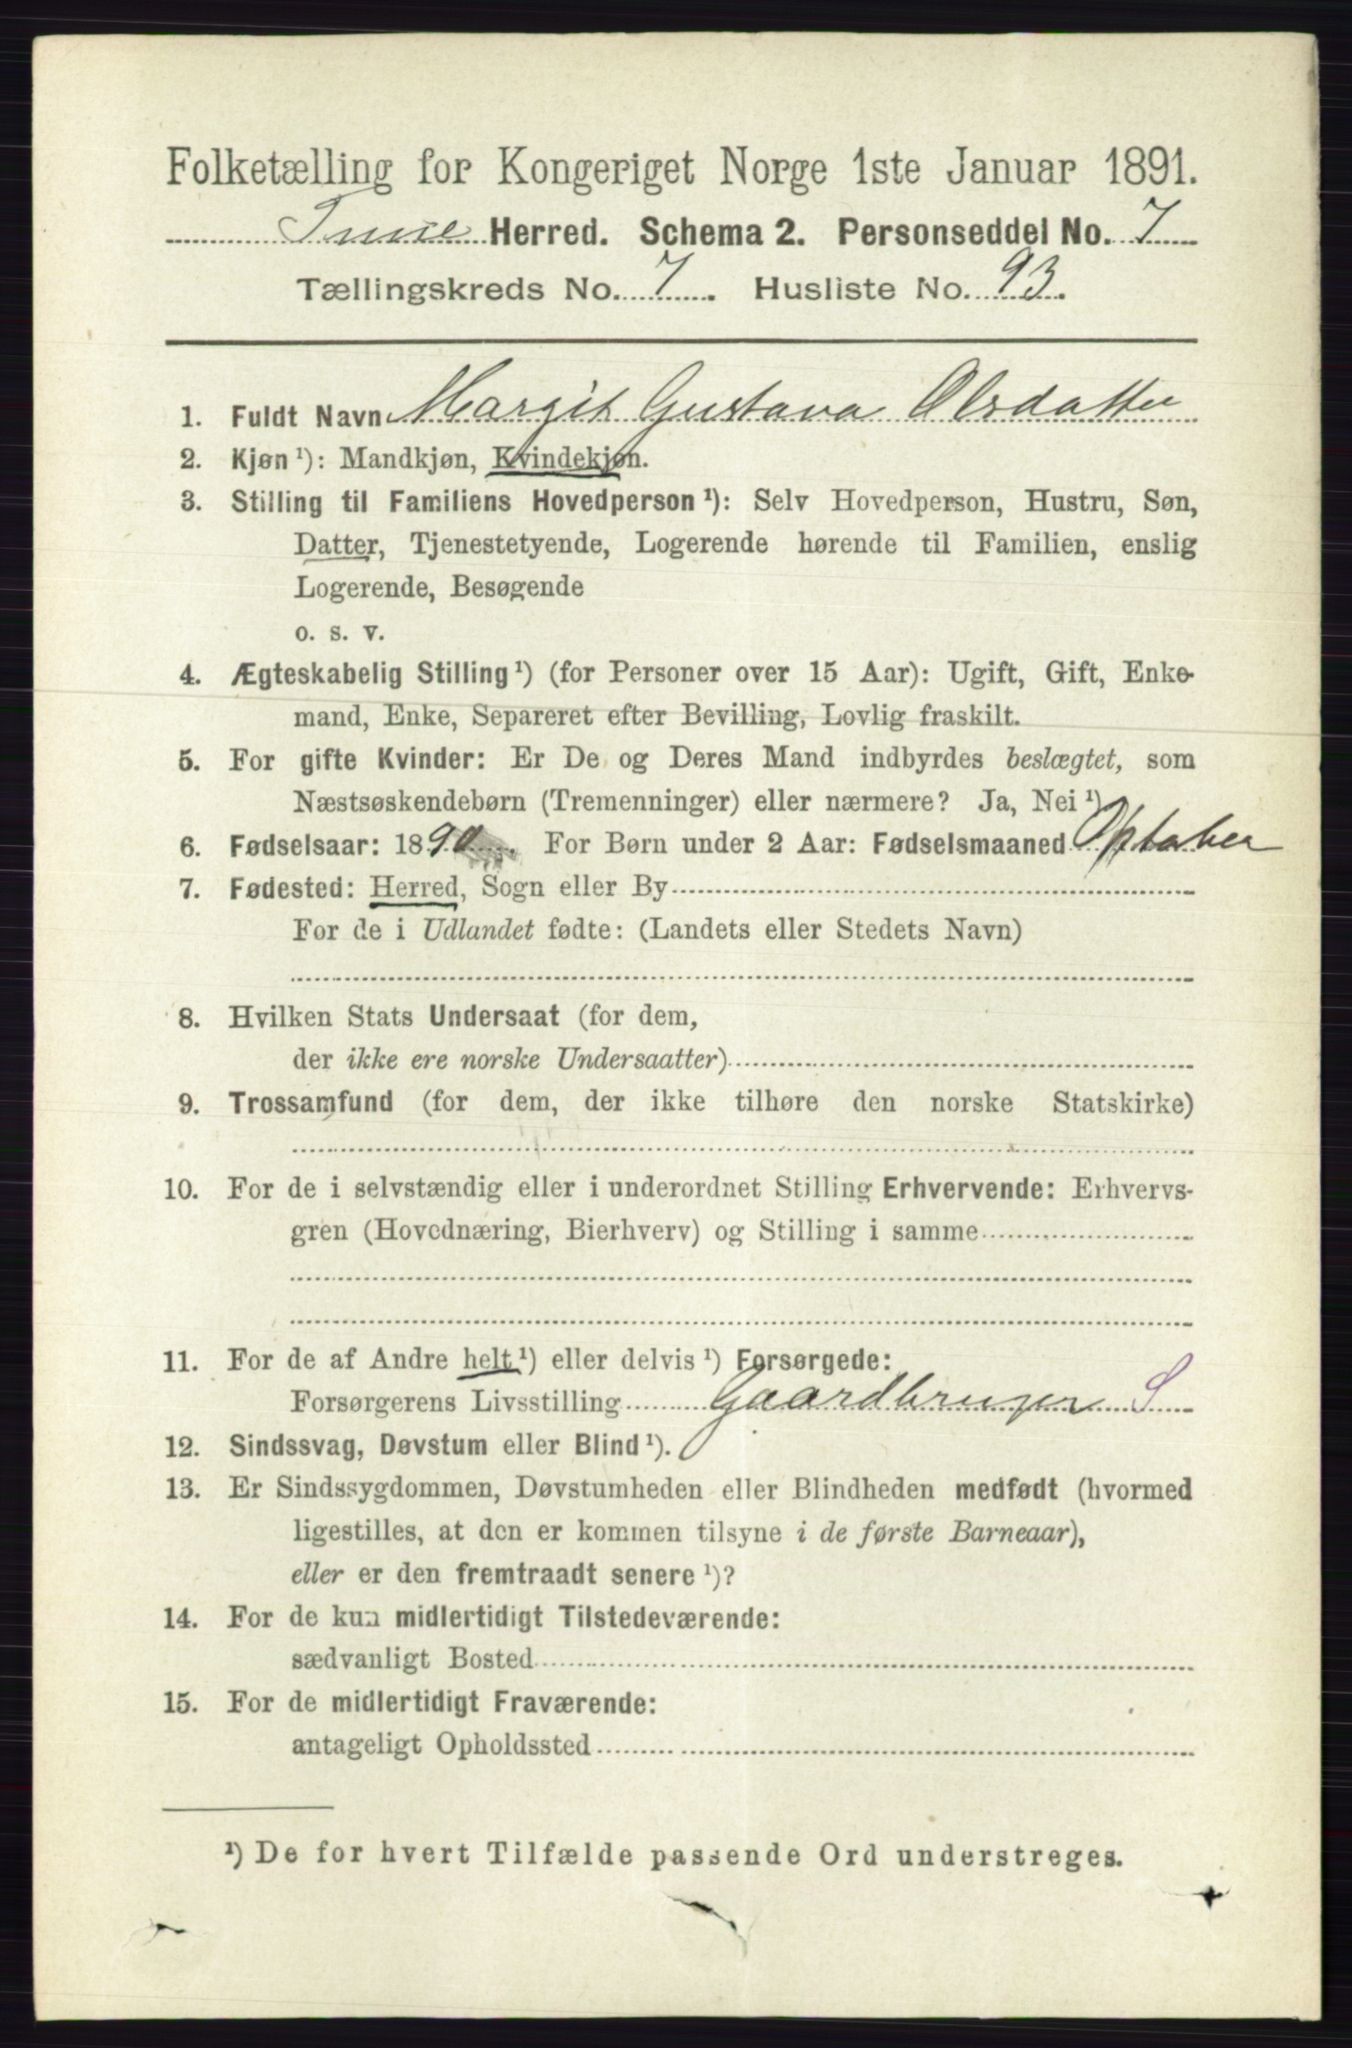 Folketælling for Kongeriget Norge 1ste Januar 1891.
Tune Herred. Schema 2. Personseddel No. 7
Tællingskreds No. 7. Husliste No. 93.
1. Fuldt Navn Margit Gustava Olsdatter
2. Kjøn ¹): Mandkjøn, Kvindekjøn.
3. Stilling til Familiens Hovedperson ¹): Selv Hovedperson, Hustru, Søn,
Datter, Tjenestetyende, Logerende hørende til Familien, enslig
Logerende, Besøgende
o. s. v.
4. Ægteskabelig Stilling ¹) (for Personer over 15 Aar): Ugift, Gift, Enke-
mand, Enke, Separeret efter Bevilling, Lovlig fraskilt.
5. For gifte Kvinder: Er De og Deres Mand indbyrdes beslægtet, som
Næstsøskendebørn (Tremenninger) eller nærmere? Ja, Nei ¹)
6. Fødselsaar: 1890. For Børn under 2 Aar: Fødselsmaaned Oktober
7. Fødested: Herred, Sogn eller By
For de i Udlandet fødte: (Landets eller Stedets Navn)
8. Hvilken Stats Undersaat (for dem,
der ikke ere norske Undersaatter)
9. Trossamfund (for dem, der ikke tilhøre den norske Statskirke)
10. For de i selvstændig eller i underordnet Stilling Erhvervende: Erhvervs-
gren (Hovednæring, Bierhverv) og Stilling i samme
11. For de af Andre helt ¹) eller delvis ¹) Forsørgede:
Forsørgerens Livsstilling Gaardbruger S
12. Sindssvag, Døvstum eller Blind ¹).
13. Er Sindssygdommen, Døvstumheden eller Blindheden medfødt (hvormed
ligestilles, at den er kommen tilsyne i de første Barneaar),
eller er den fremtraadt senere ¹)?
14. For de kun midlertidigt Tilstedeværende:
sædvanligt Bosted
15. For de midlertidigt Fraværende:
antageligt Opholdssted
¹) De for hvert Tilfælde passende Ord understreges.